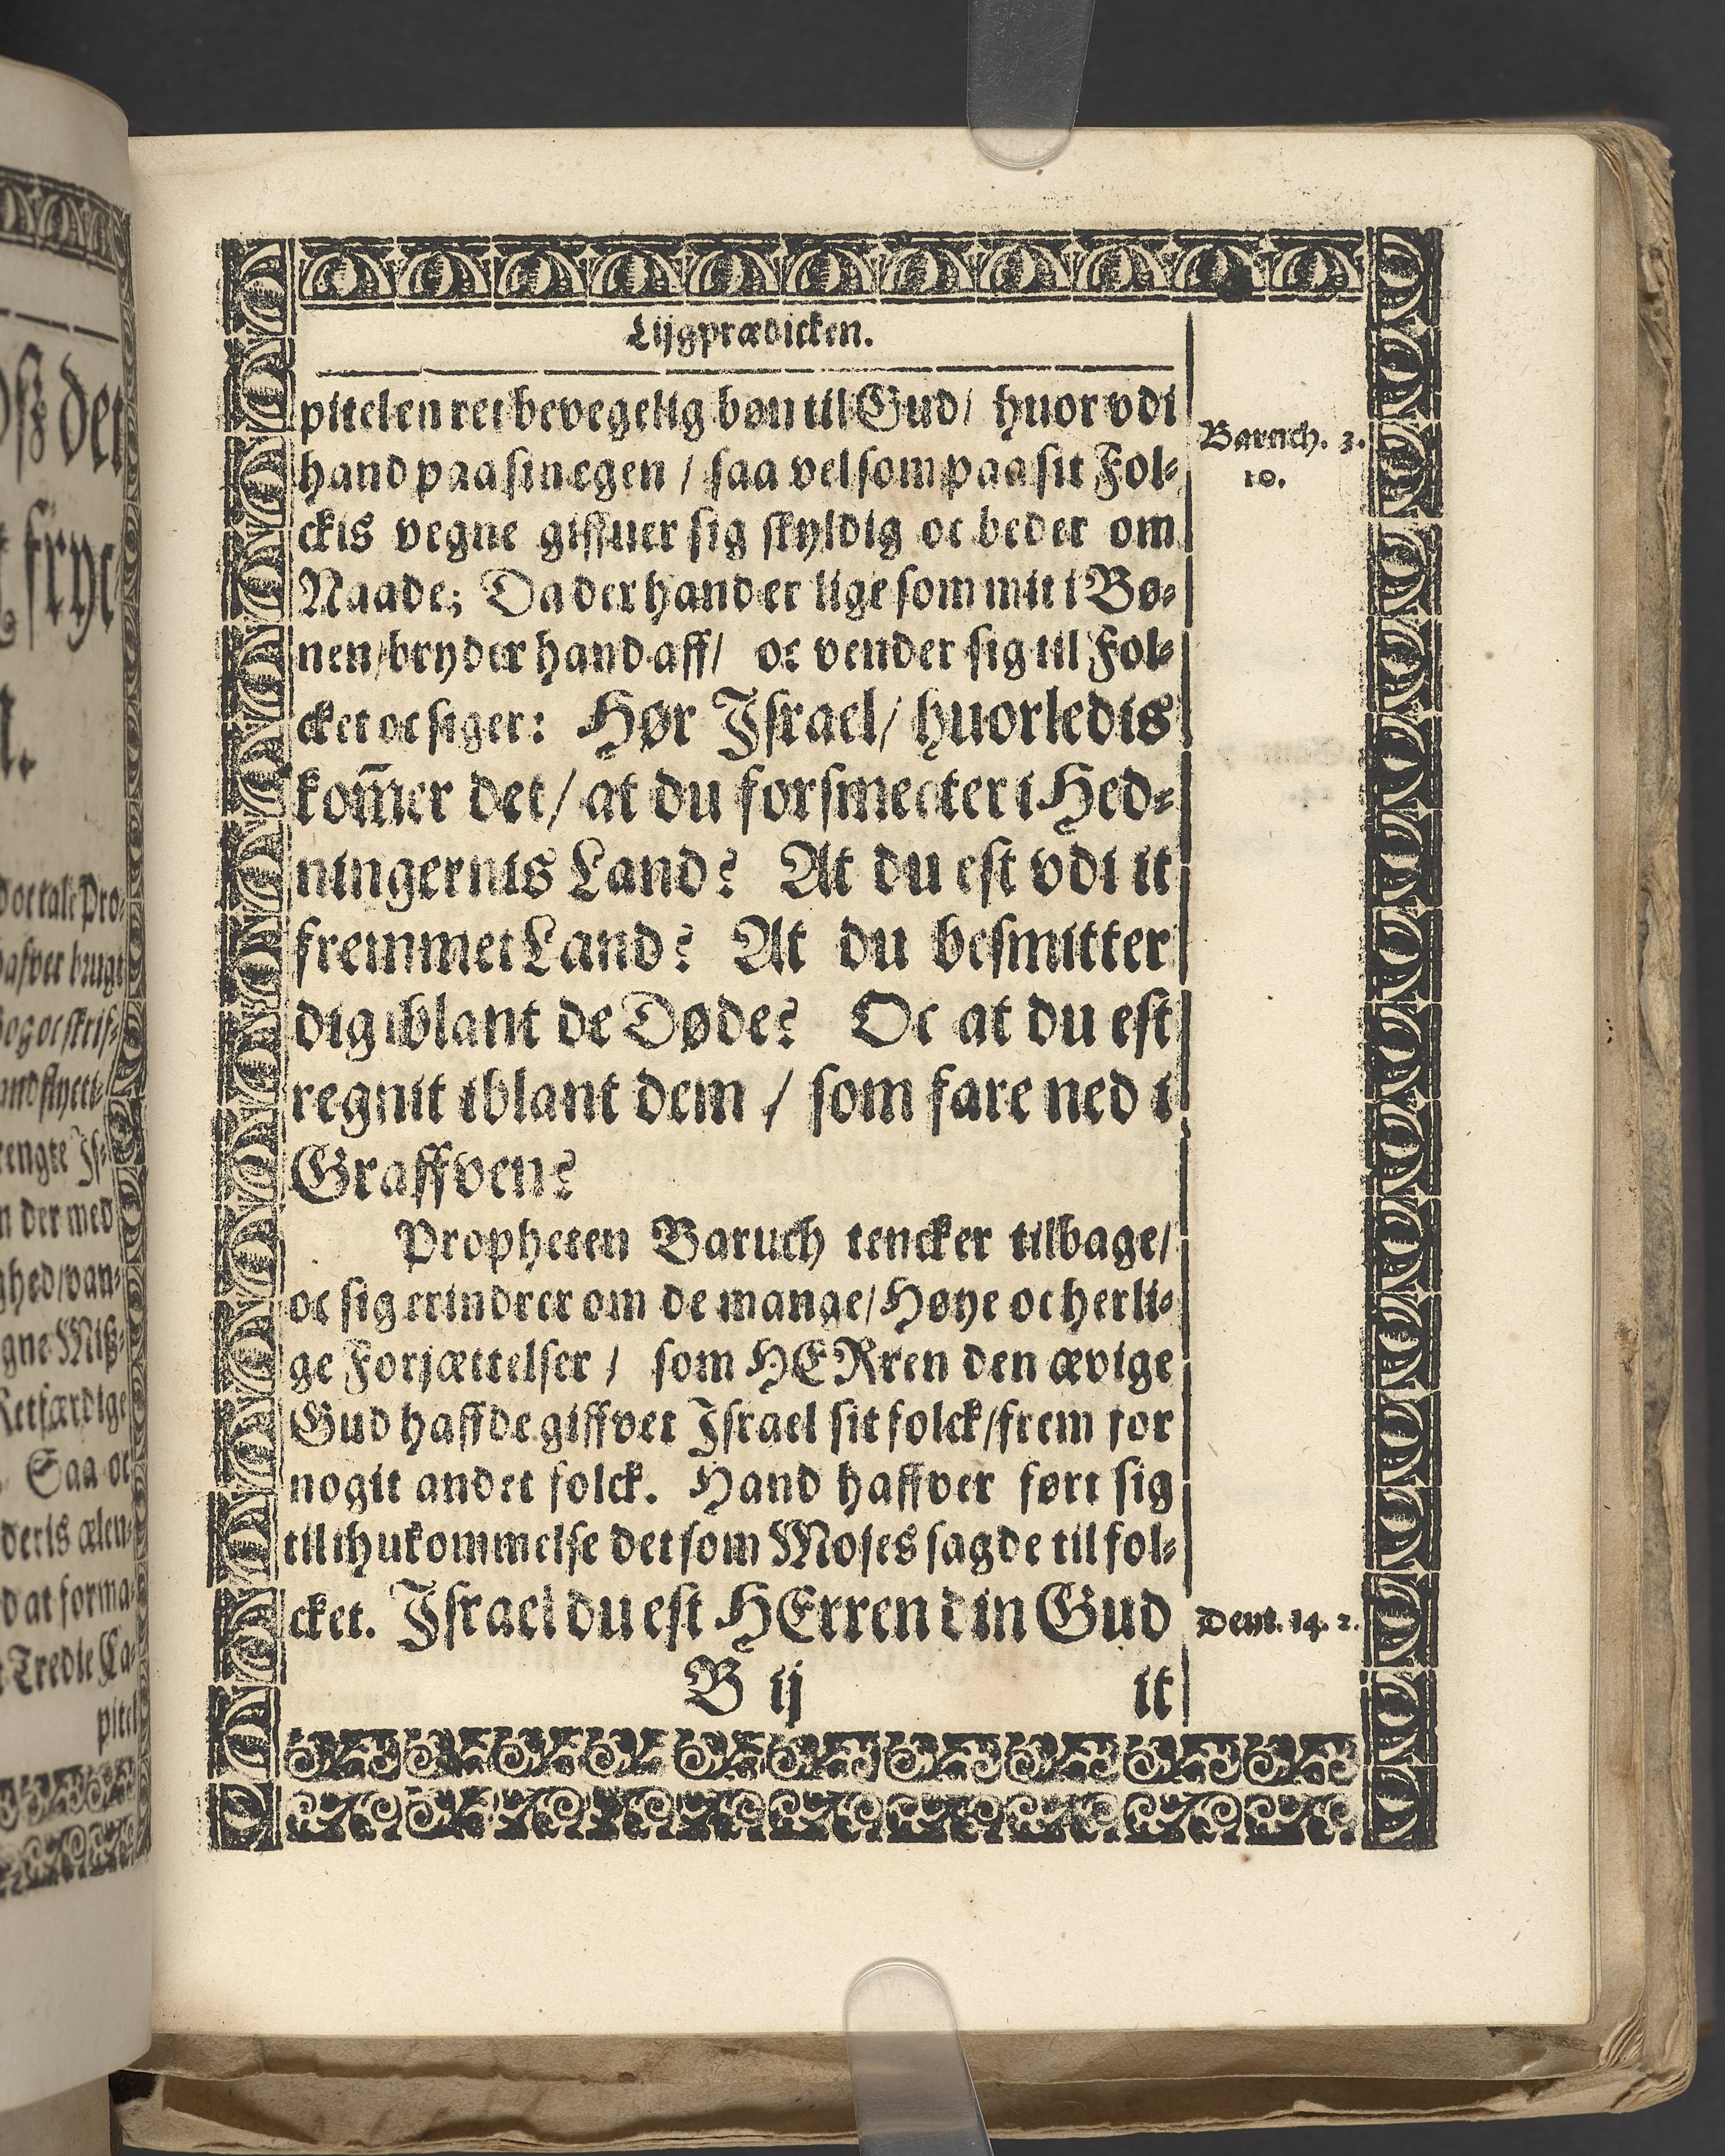 Lijgprædicken.
pitel en ret bevegelig bøn til Gud/ huor vdi
hand paa sin egen / saa vel som paa sit Fol-
ckis vegne giffuer sig skyldig oc beder om
Naade; Da der hand er lige som mit i Bø-
nen/bryder hand aff/ oc vender sig til Fol-
cket oc siger: Hør Jsrael/ huorledis
kom̄er det/ at du forsmecter i Hed-
ningernis Land? At du est vdi it
fremmet Land? At du besmitter
dig iblant de Døde? Oc at du est
regnit iblant dem / som fare ned i
Graffven?
Propheten Baruch tencker tilbage/
oc sig erindrer om de mange/ Høye oc herli-
ge Forjættelser / som HERren den ævige
Gud haffde giffvet Jsrael sit folck/frem for
nogit andet folck. Hand haffver ført sig
til ihukommelse det som Moses sagde til fol-
cket. Jsrael du est HErren din Gud
B ij it
Baruch. 3.
10.
Deut. 14. 2.
det
fryc
oc tale Pro-
hafver brugt
oc skrif-
engte Js-
n der med
ghed/van-
gne Miß-
Retfærdige
Saa oc
deris ælen-
d at forma-
Tredie Ca-
pitel